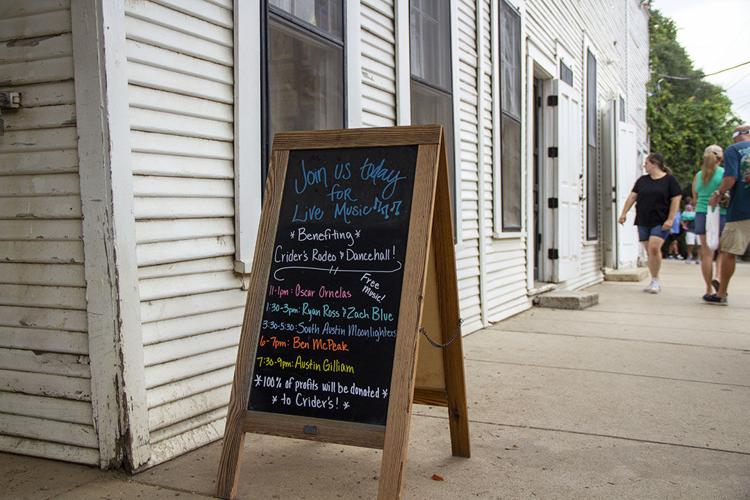 Join us today
for
Live Music
* Benefiting *
Crider's Rodeo & Dancehall!
Free
Music!
11-1pm: Oscar Ornelas
1:30-3pm: Ryan Ross & Zach Blue
3:30-5:30: South Austin Moonlighters
6-7pm: Ben McPeak
7:30-9pm: Austin Gilliam
*100% of profits will be donated*
* to Crider's! *